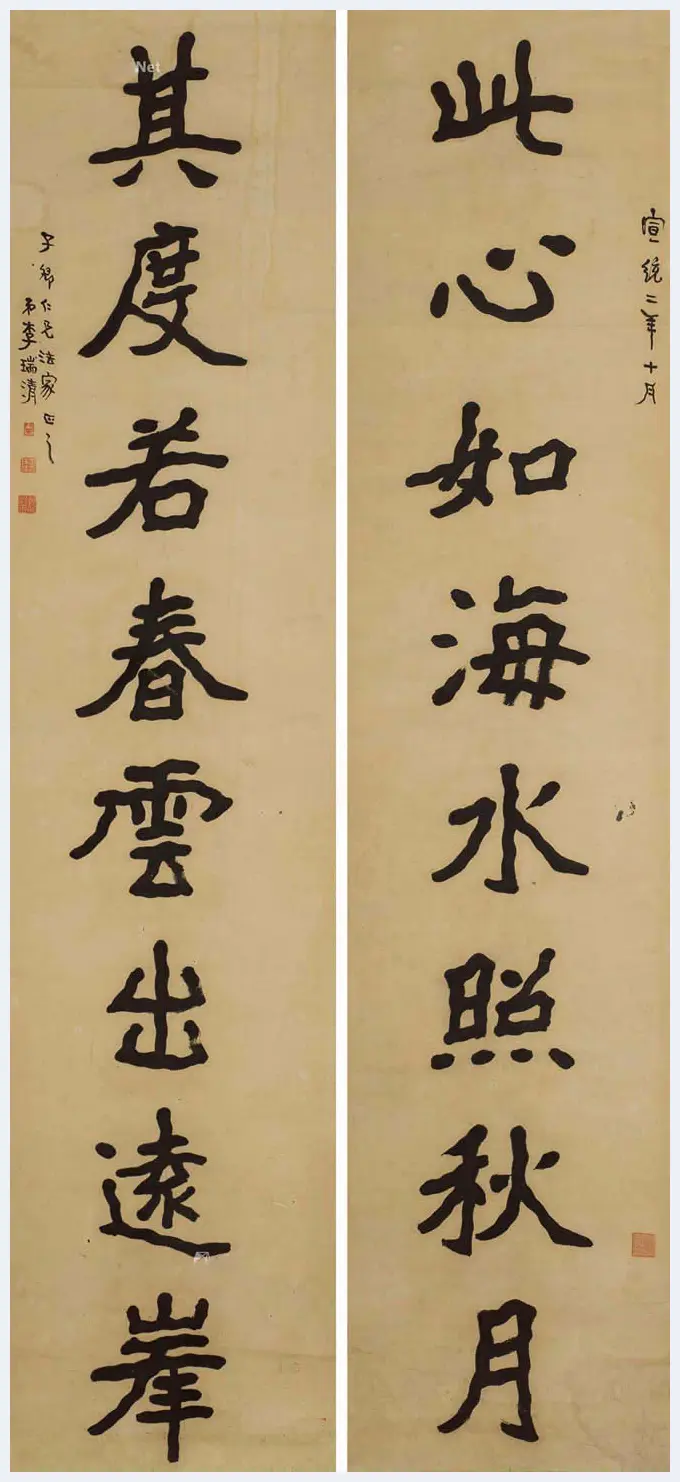 宣統二年十月
此心如海水照秋月
其度若春雲出遠峯
子卿仁兄法家正之
弟李瑞清
Net